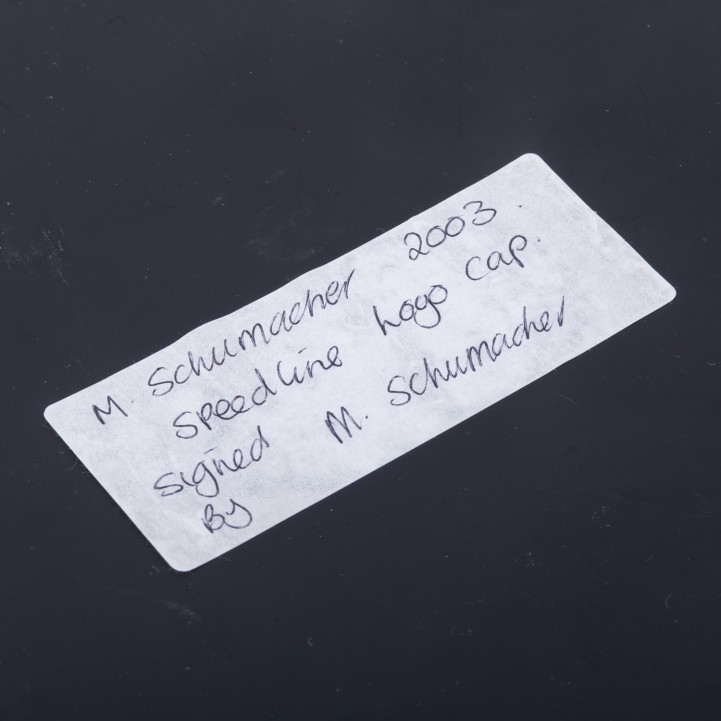 M. Schumacher 2003.
Speedline Logo Cap.
Signed M. Schumacher
By